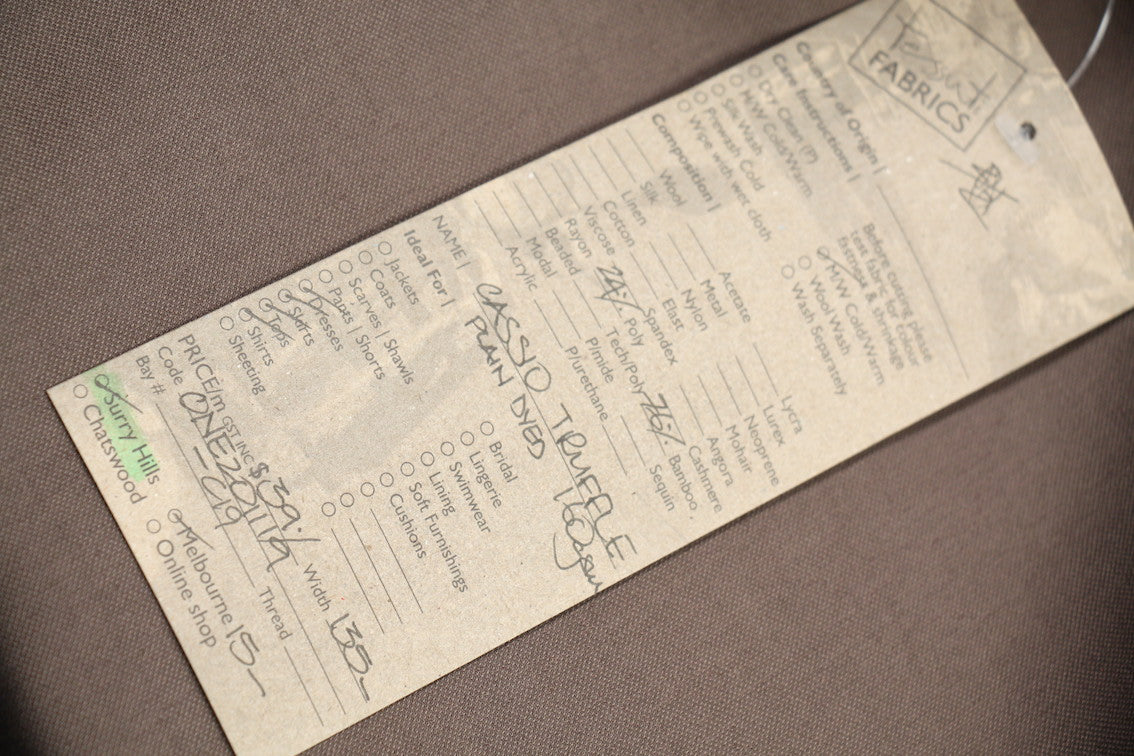 Tessuti
FABRICS
Country of Origin |
Care Instructions |
Dry Clean (P)
M/W Cold/Warm
Silk Wash
Prewash Cold
Wipe with wet cloth
Before cutting please
test fabric for colour
fastness & shrinkage
M/W Cold/Warm
Wool Wash
Wash Separately
Composition |
Wool
Silk
Linen
Cotton
Viscose
Rayon
Beaded
Modal
Acrylic
Acetate
Metal
Nylon
Elast
Spandex
24% Poly
Tech/Poly
P/mide
P/urethane
Lycra
Lurex
Neoprene
Mohair
Angora
Cashmere
76% Bamboo
Sequin
NAME | CASSIO TRUFFLE
PLAIN DYED 160gsm
Ideal For |
Jackets
Coats
Scarves | Shawls
Pants | Shorts
Dresses
Skirts
Tops
Shirts
Sheeting
Bridal
Lingerie
Swimwear
Lining
Soft Furnishings
Cushions
PRICE/m GST INC $39.- Width 135-
Code
Bay # C19 Thread
Surry Hills
Chatswood
Melbourne 15-
Online shop